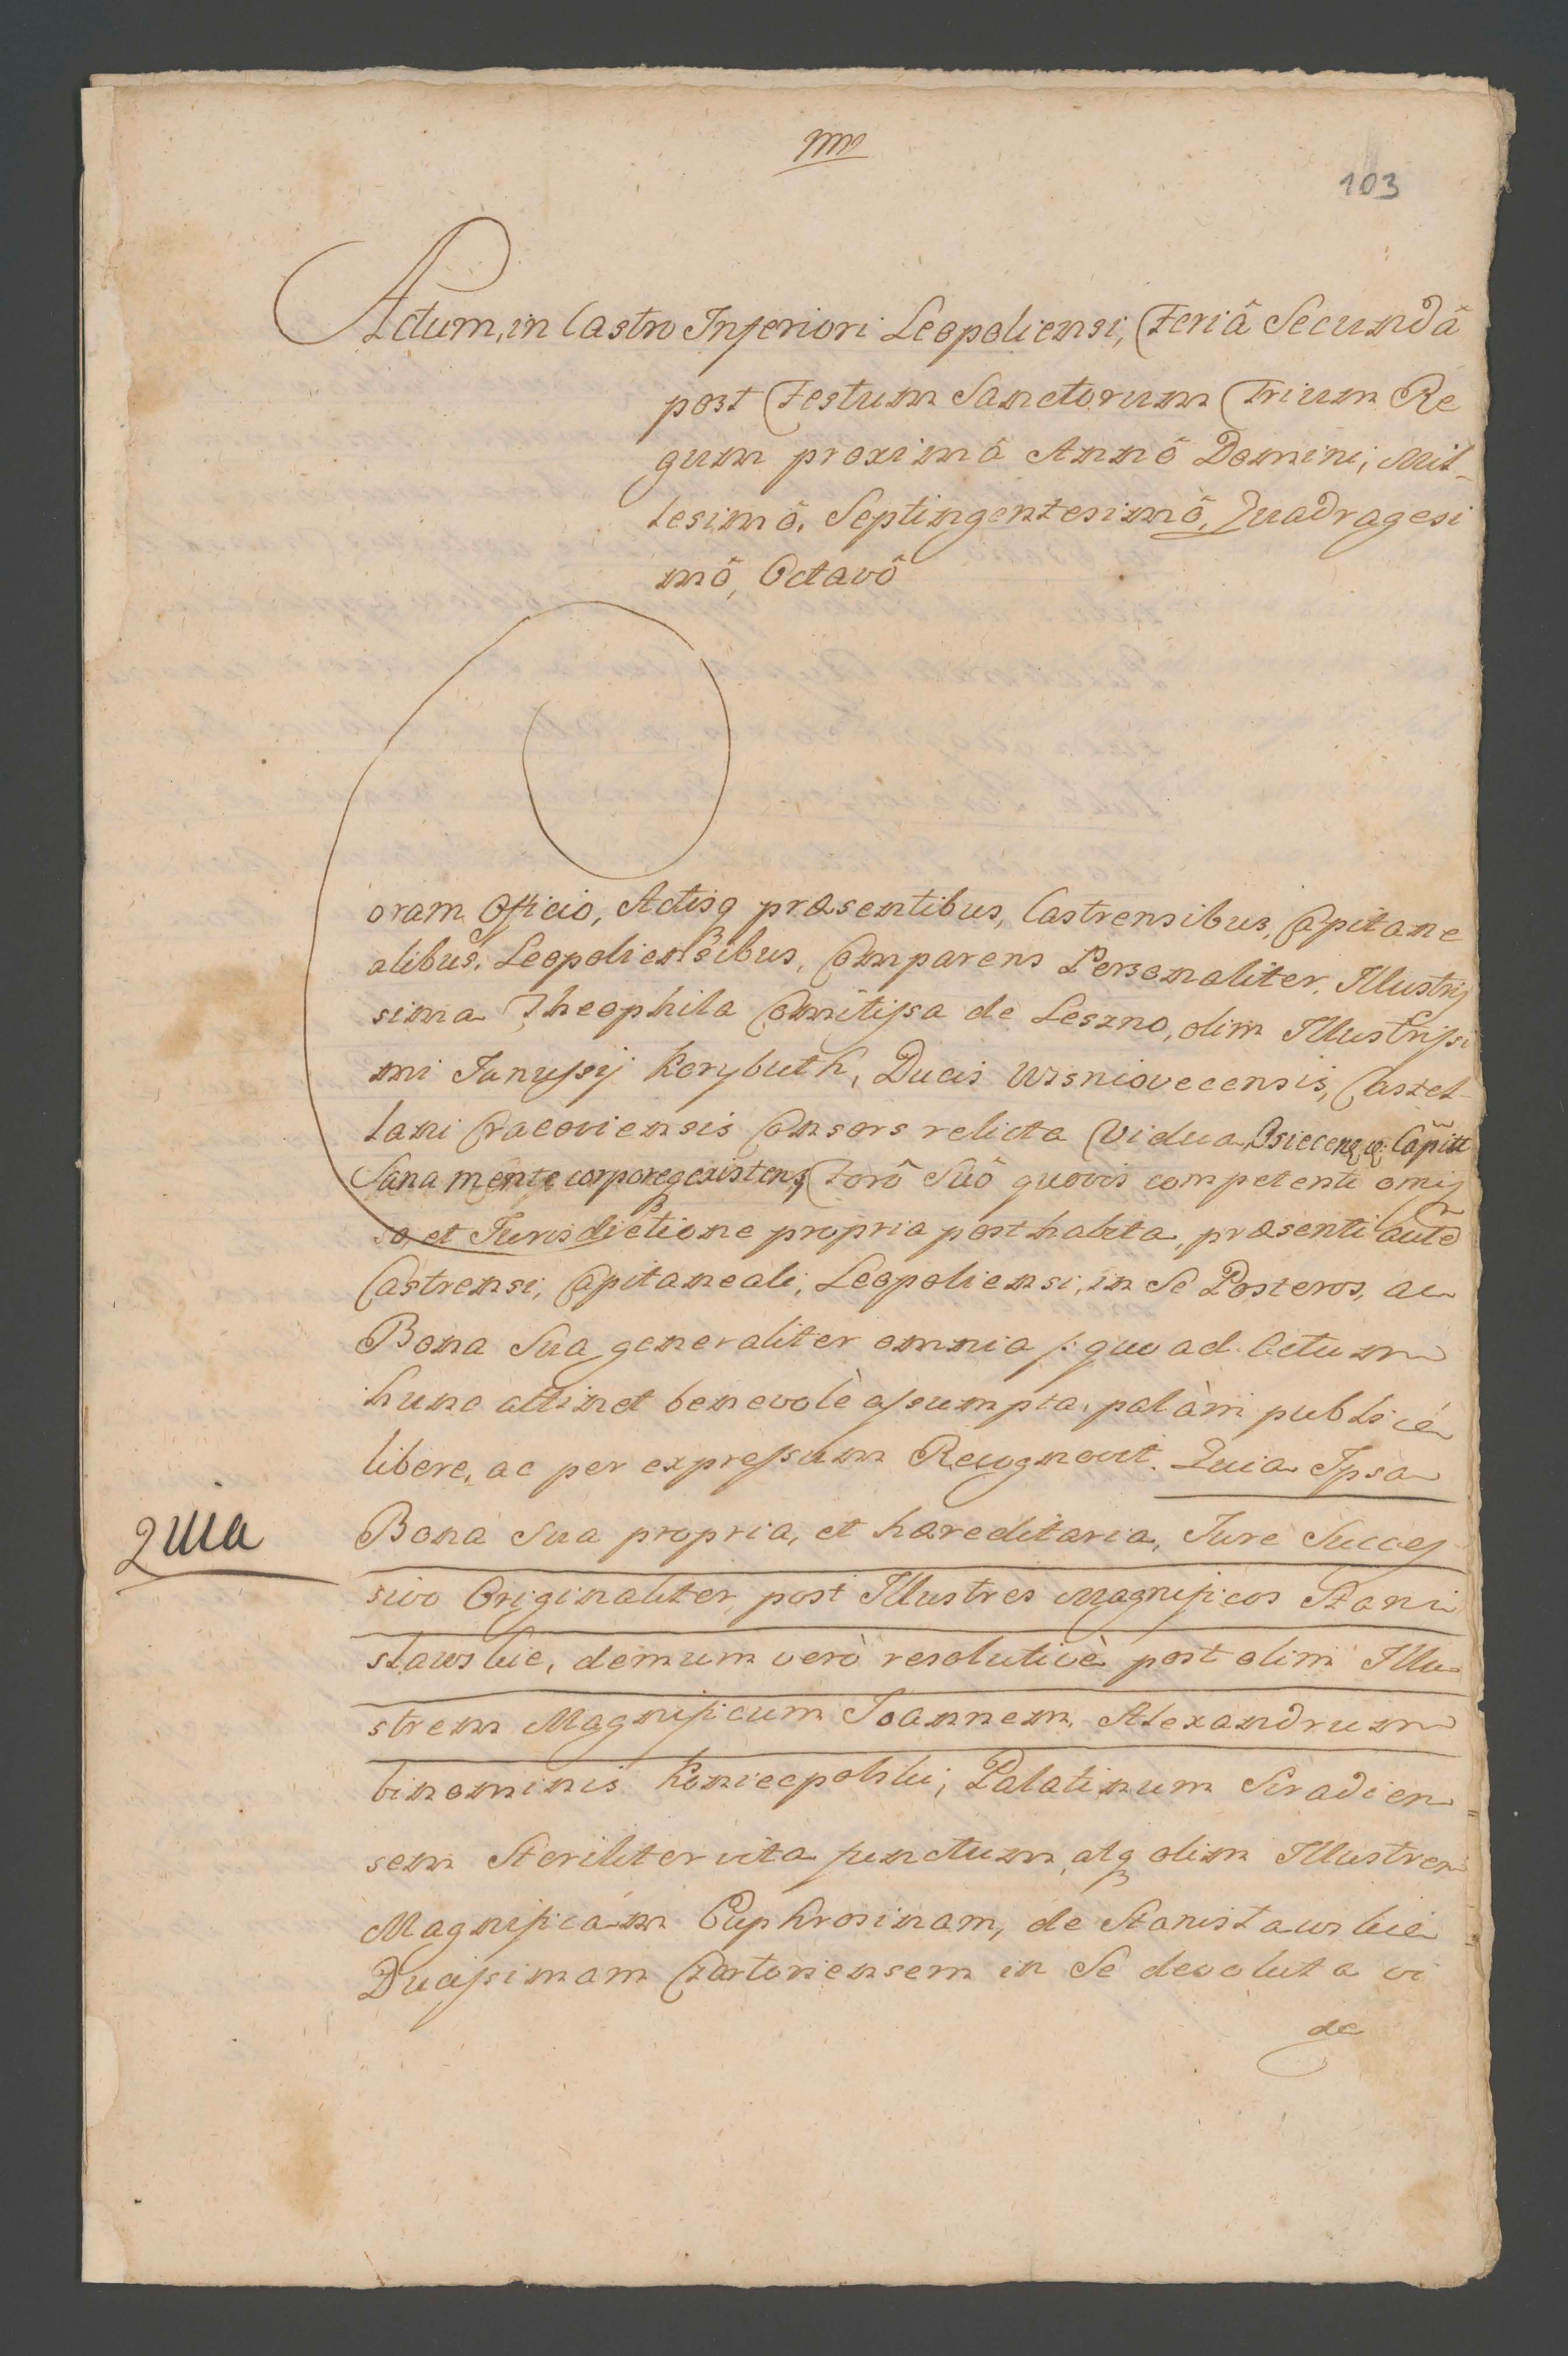 103
Actum, in Castro Inferiori Leopoliensi, Feriâ Secundâ
post Festum Sanctorum Trium Re
gum proximâ Annô Domini, Mil-
lesimô, Septingentesimô, Quadragesi
mô, Octavô
Coram Officio, Actisq præsentibus, Castrensibus, Capitane
alibus, Leopoliensibus, Comparens Personaliter, Illustris
sima Theophila Comitissa de Leszno, olim Illustrissi
mi Janussij Korybuth, Ducis Wisniovecensis, Castel-
lani Cracoviensis Consors relicta Vidua,
Sana mente corporeq existens, Forô Suô quovis competenti omis
so, et Jurisdictione propria posthabita, præsenti autẽ
Castrensi, Capitaneali, Leopoliensi, in Se Posteros, ac
Bona Sua generaliter omnia /: quo ad Actum
hunc attinet benevolè assumpta, palàm publicé
libere, ac per expressum Recognovit. Quia Ipsa
Quia
Bona Sua propria, et hæreditaria, Jure Succes
sivo Originaliter, post Illustres Magnificos Stani
slawskie, demum verò resolutivè post olim Illu
strem Magnificum Joannem, Alexandrum
binominis Koniecpolski, Palatinum Siradien
sem Steriliter vita functum, atq olim Illustrem
Magnificam Euphrosinam, de Stanisławskie
Ducissimam Czartoriensem in Se devoluta vi
de